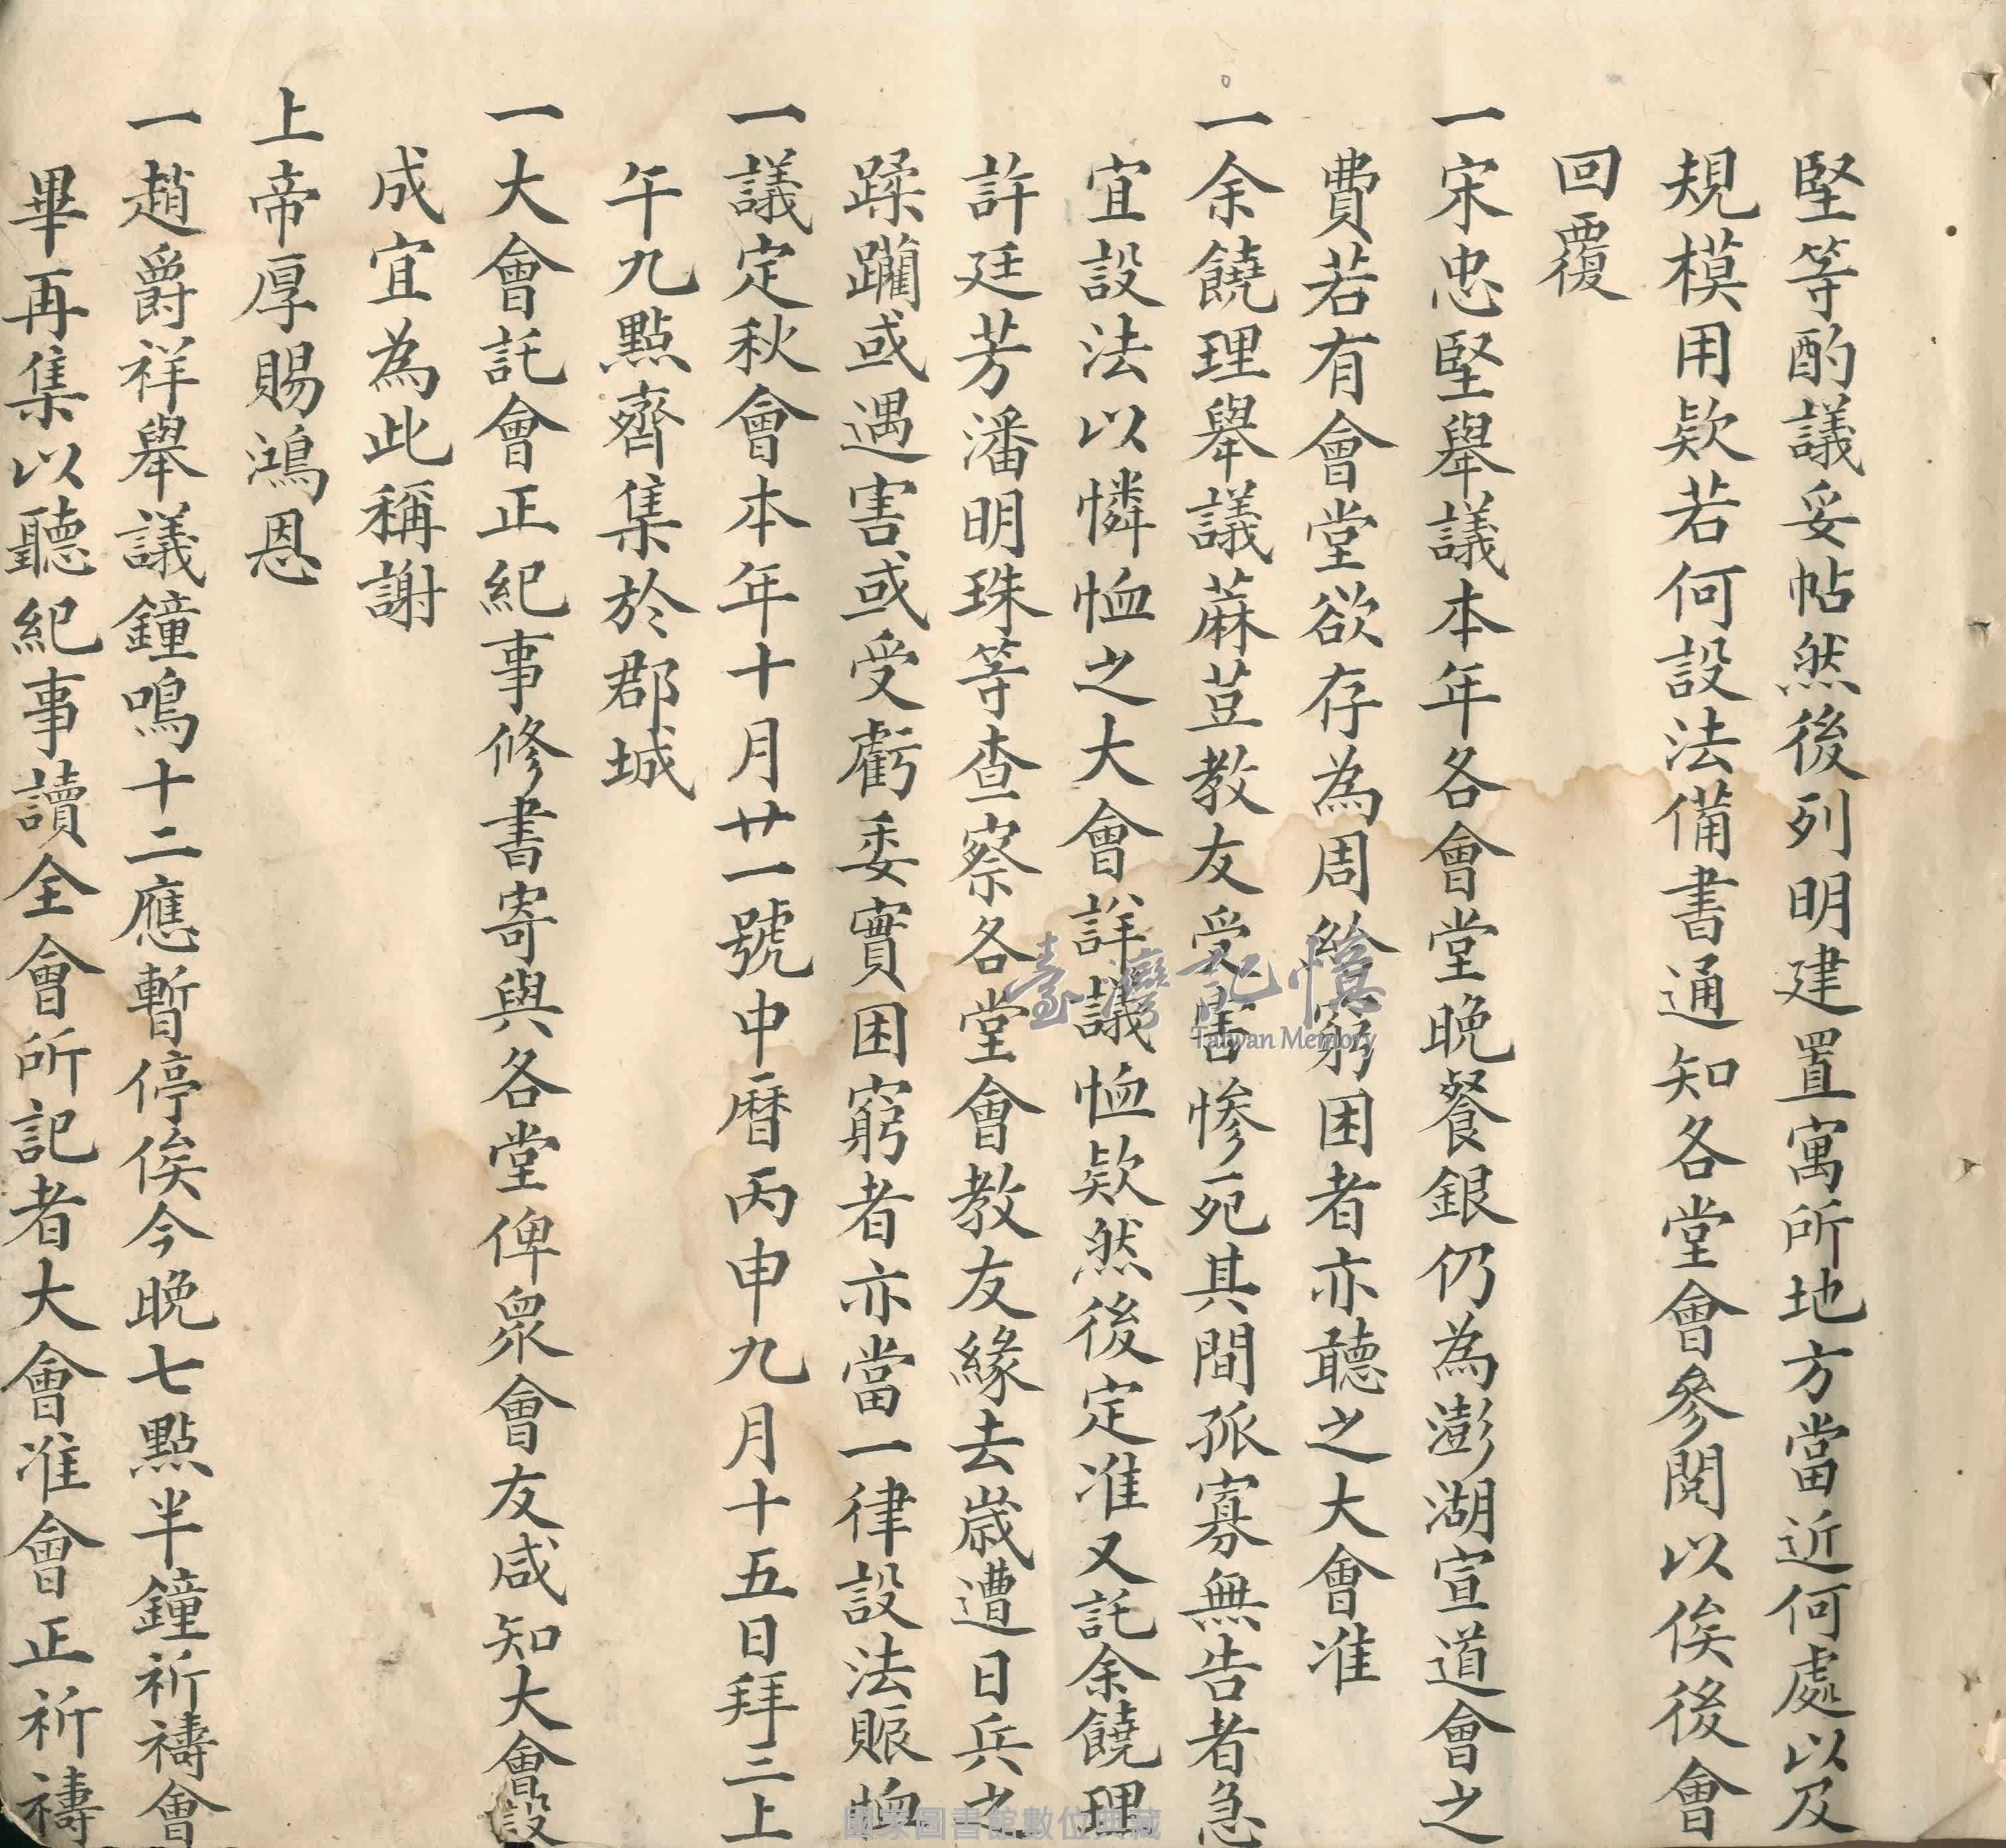 堅等酌議妥帖然後列明建置寓所地方當近何處以及
規模用欵若何設法備書通知各堂會參閱以俟後會
回覆
一宋忠堅舉議本年各會堂晚餐銀仍為澎湖宣道會之
費若有會堂欲存為周給窮困者亦聽之大會准
一余饒理舉議蔴荳教友受害慘死其間孤寡無告者急
宜設法以憐恤之大會詳議恤欵然後定准又託余饒理
許廷芳潘明珠等查察各堂會教友緣去歲遭日兵之
蹂躪或遇害或受虧委實困窮者亦當一律設法賑恤
一議定秋會本年十月廿一號中曆丙申九月十五日拜三上
午九點齊集於郡城
一大會託會正紀事修書寄與各堂俾眾會友咸知大會設
成宜為此稱謝
上帝厚賜鴻恩
一趙爵祥舉議鐘鳴十二應暫停俟今晚七點半鐘祈禱會
畢再集以聽紀事讀全會所記者大會准會正祈禱
臺灣記憶
Taiwan Memory
國家圖書館數位典藏